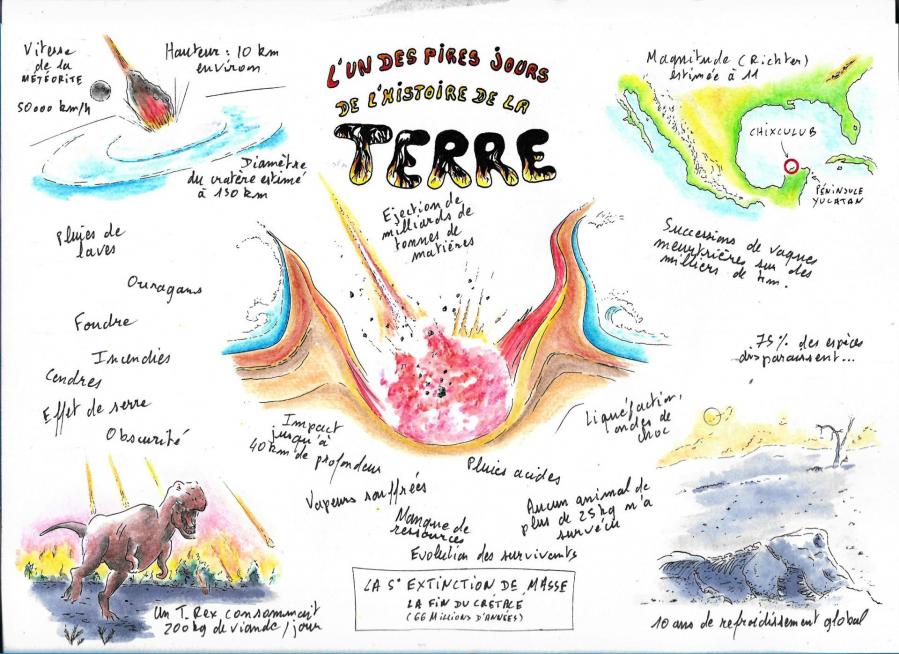 L'UN DES PIRES JOURS
DE L'HISTOIRE DE LA
TERRE
Vitesse
de la
MÉTÉORITE
50000 km/h
Hauteur : 10 km
environ
Diamètre
du cratère estimé
à 130 km
Magnitude (Richter)
estimée à 11
CHIXCULUB
PÉNINSULE
YUCATAN
Ejection de
milliards de
tonnes de
matières
Successions de vagues
meurtrières sur des
milliers de km.
Pluies de
laves
Ouragans
Foudre
Incendies
Cendres
Effet de serre
Obscurité
75% des espèces
disparaissent...
Impact
jusqu'à
40 km de profondeur
Liquéfaction,
ondes de
choc
Pluies acides
Vapeurs souffrées
Manque de
ressources
Aucun animal de
plus de 25 kg n'a
survécu
Evolution des survivants
LA 5e EXTINCTION DE MASSE
LA FIN DU CRÉTACÉ
(66 MILLIONS D'ANNÉES)
Un T. Rex consommait
200 kg de viande / jour
10 ans de refroidissement global